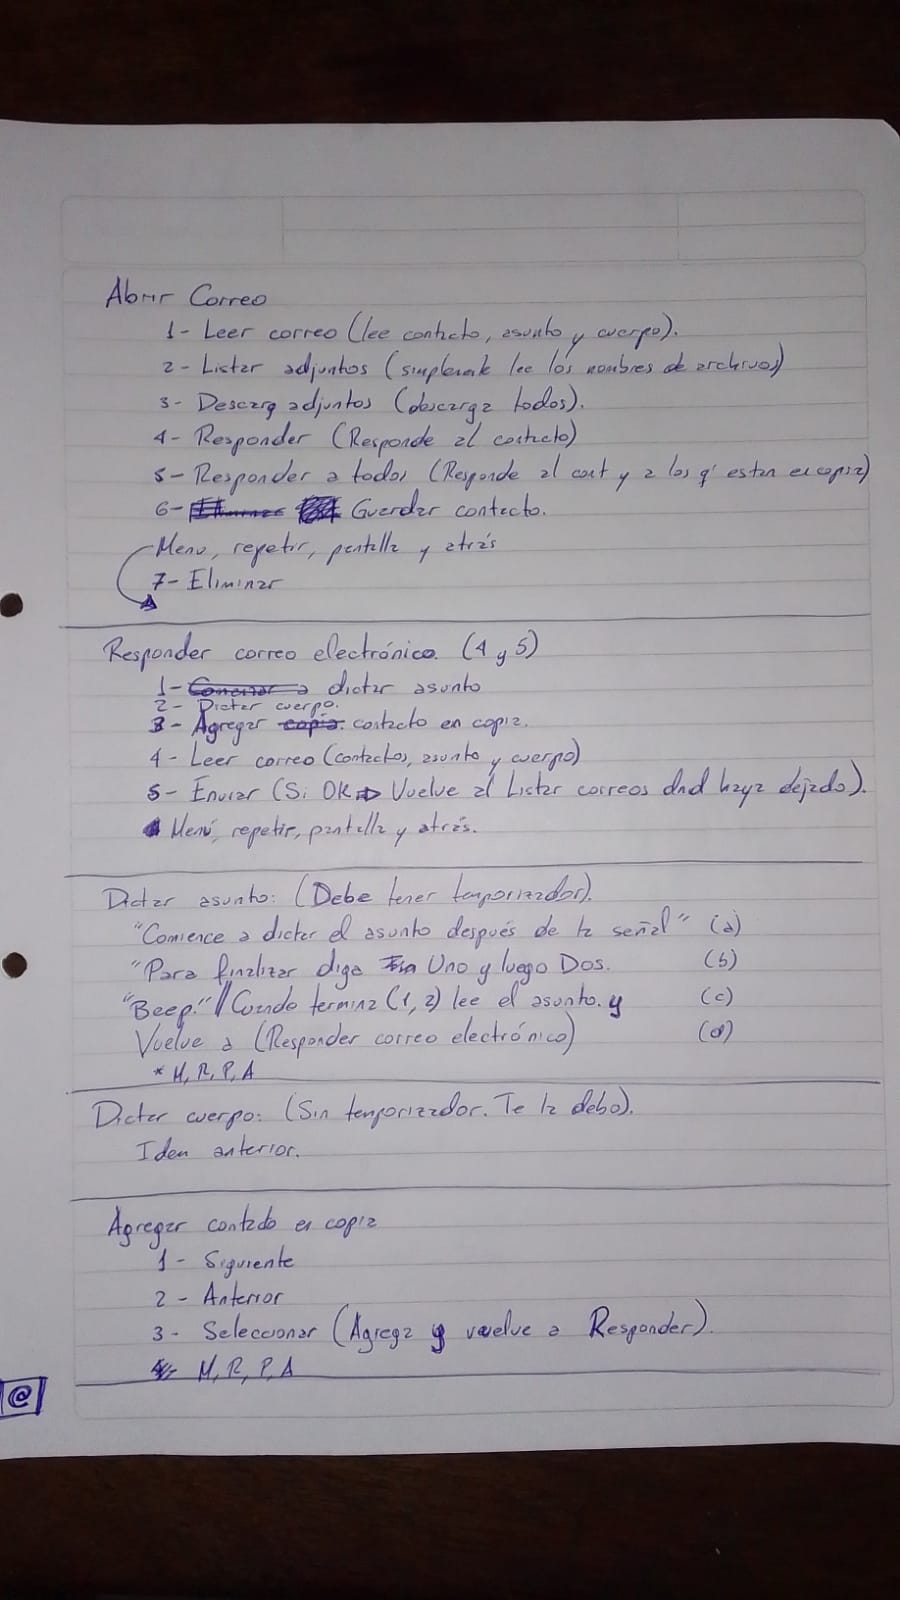 Abrir Correo
1- Leer correo (lee contacto, asunto y cuerpo).
2- Listar adjuntos (simplemente lee los nombres de archivos)
3- Descarg adjuntos (descarga todos).
4- Responder (Responde al contacto)
5- Responder a todos (Responde al cont y a los q' estan en copia)
6- Guardar contacto.
Menu, repetir, pantalla y atrás
7- Eliminar
Responder correo electrónico. (4 y 5)
1- dictar asunto
2- Dictar cuerpo.
3- Agregar copia. contacto en copia.
4- Leer correo (contactos, asunto y cuerpo)
5- Enviar (Si OK ⇒ Vuelve al Listar correos dnd haya dejado).
Menú, repetir, pantalla y atrás.
Dictar asunto: (Debe tener temporizador).
"Comience a dictar el asunto después de la señal" (a)
"Para finalizar diga Uno y luego Dos. (b)
"Beep." // Cuando termina (1, 2) lee el asunto. y (c)
Vuelve a (Responder correo electrónico) (d)
* M, R, P, A
Dictar cuerpo: (Sin temporizador. Te la debo).
Idem anterior.
Agregar contacto en copia
1- Siguiente
2- Anterior
3- Seleccionar (Agrega y vuelve a Responder).
M, R, P, A
@